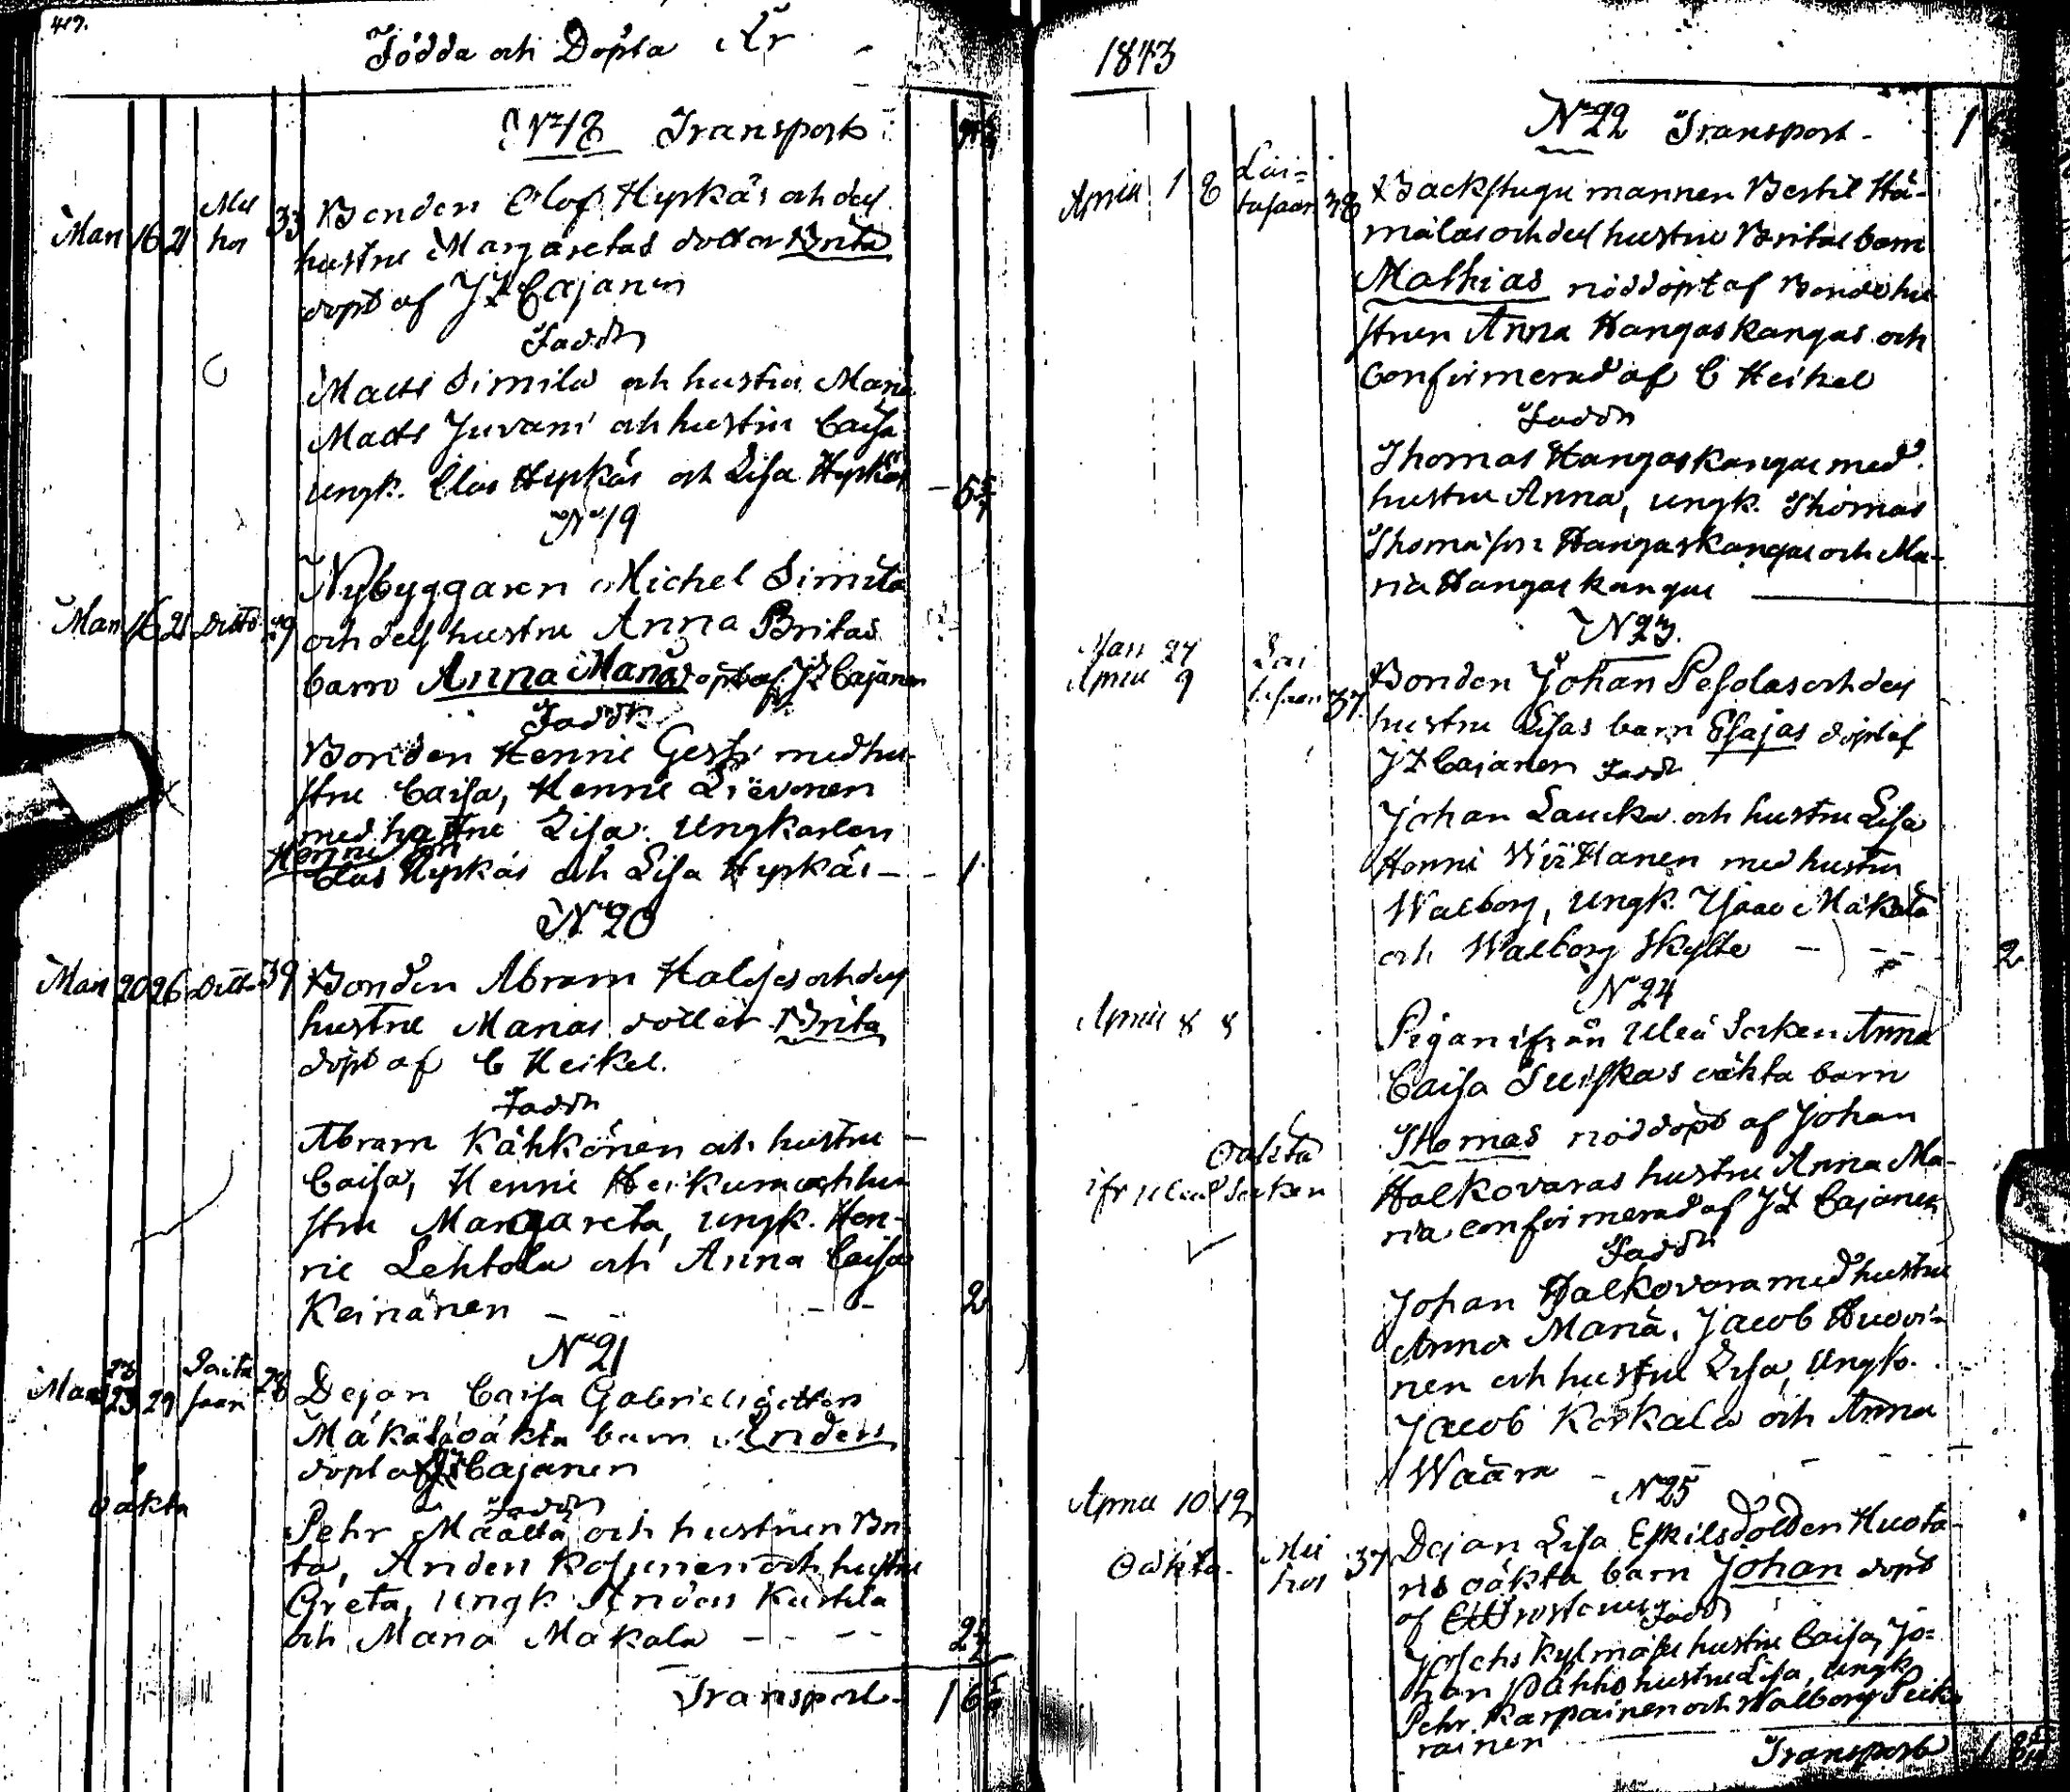 419.
Födda och Döpta År
N 18 Transport
Mars 16 21 33 Bonden Olof Hyrkäs och dess
hustru Margaretas dotter Brita
döpt af J Z Cajanen
Faddr
Matts Similä och hustru Maria
Matts Juvani och hustru Caisa
ungk. Elas Hyrkäs och Lisa Hyrkäs
N 19
Nybyggaren Michel Similä
Mars 16 21 Ditto 29 och dess hustru Anna Britas
barn Anna Maria döpt af J Z Cajanen
Faddr
Bonden Henric Gesti med hu
stru Caisa, Henric Liëvonen
med hustru Lisa. Ungkarlen
Henric son
Elas Hyrkäs och Lisa Hyrkäs - 1
N 20
Mars 20 26 Ditto 39 Bonden Abram Haljes och dess
hustru Marias dotter Brita
döpt af C Heikel.
Faddr
Abram Kähkönen och hustru
Caisa, Henric och hu
stru Margareta, ungk. Hen-
ric Lehtola och Anna Caisa
Keinänen - - 2
N 21
Mars 23 29 28 Dejan Caisa Gabrielsdotter
Mäkälä oäkta barn Anders
döpt af Cajanen
oäkta
Faddr
Pehr Määttä och hustrun Bri
ta, Anders Kosunen och hustru
Greta, ungk Anders Kurtila
och Maria Mäkälä - - - -
Transport
1843
N 22 Transport -
April 1 8 Lai=
tasaari 38 Backstugu mannen Bertil Hä-
mäläs och dess hustru Britas barn
Mathias nöddöpt af Bonde hu
strun Anna Hangaskangas och
Confirmerad af C Heikel
Faddr
Thomas Hangaskangas med
hustru Anna, ungk. Thomas
Thomasson Hangaskangas och Ma-
ria Hangaskangas
N 23.
Mars 27
April 9 37 Bonden Johan Pesolas och dess
hustru Lisas barn Esajas döpt af
J Z Cajanen Faddr
Johan Laucka och hustru Lisa
Henric med hustru
Walborg, ungk. Isaac Mäkelä
och Walborg Skytte - - - 2
N 24
April 8 8 Pigan ifrån Uleå Socken Anna
Caisa oäkta barn
Thomas nöddöpt af Johan
Oäkta
ifr Uleå Socken Halkovaras hustru Anna Ma-
ria confirmerad af J Z Cajanen
Faddr
Johan Halkovara med hustru
Anna Maria, Jacob Huovi-
nen och hustru Lisa, Ungk.
Jacob Korkala och Anna
Waara -
N 25
April 10 12
Oäkta. 37 Dejan Lisa Eskilsdotter Huota
ris oäkta barn Johan döpt
af Faddr
hustru Caisa, Jo=
han hustru Lisa, ungk
Pehr Karpainen och Walborg Peik
rainen
Transport